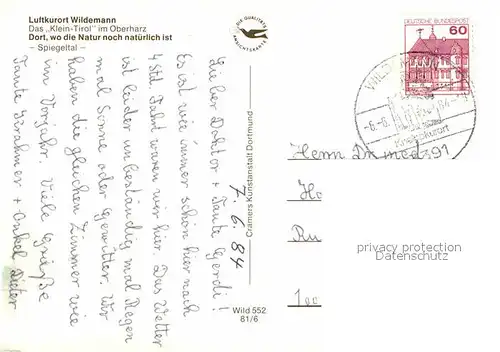 Luftkurort Wildemann
Das „Klein-Tirol" im Oberharz
Dort, wo die Natur noch natürlich ist
– Spiegeltal –
DIE QUALITÄTS
ANSICHTSKARTE
Lieber Doktor + Tante Gerdi!
Es ist wie immer schön hier nach
4 Std. Fahrt waren wir hier. Das Wetter
ist leider unbeständig mal Regen
mal Sonne oder Gewitter. Wir
haben die gleichen Zimmer wie
im Vorjahr. Viele Grüße
Tante + Onkel Dieter
7. 6. 84
Cramers Kunstanstalt Dortmund
Wild 552
81/6
DEUTSCHE BUNDESPOST
60
Kneippkurort
Herrn Dr. med.
Ho
Ru
privacy protection
Datenschutz